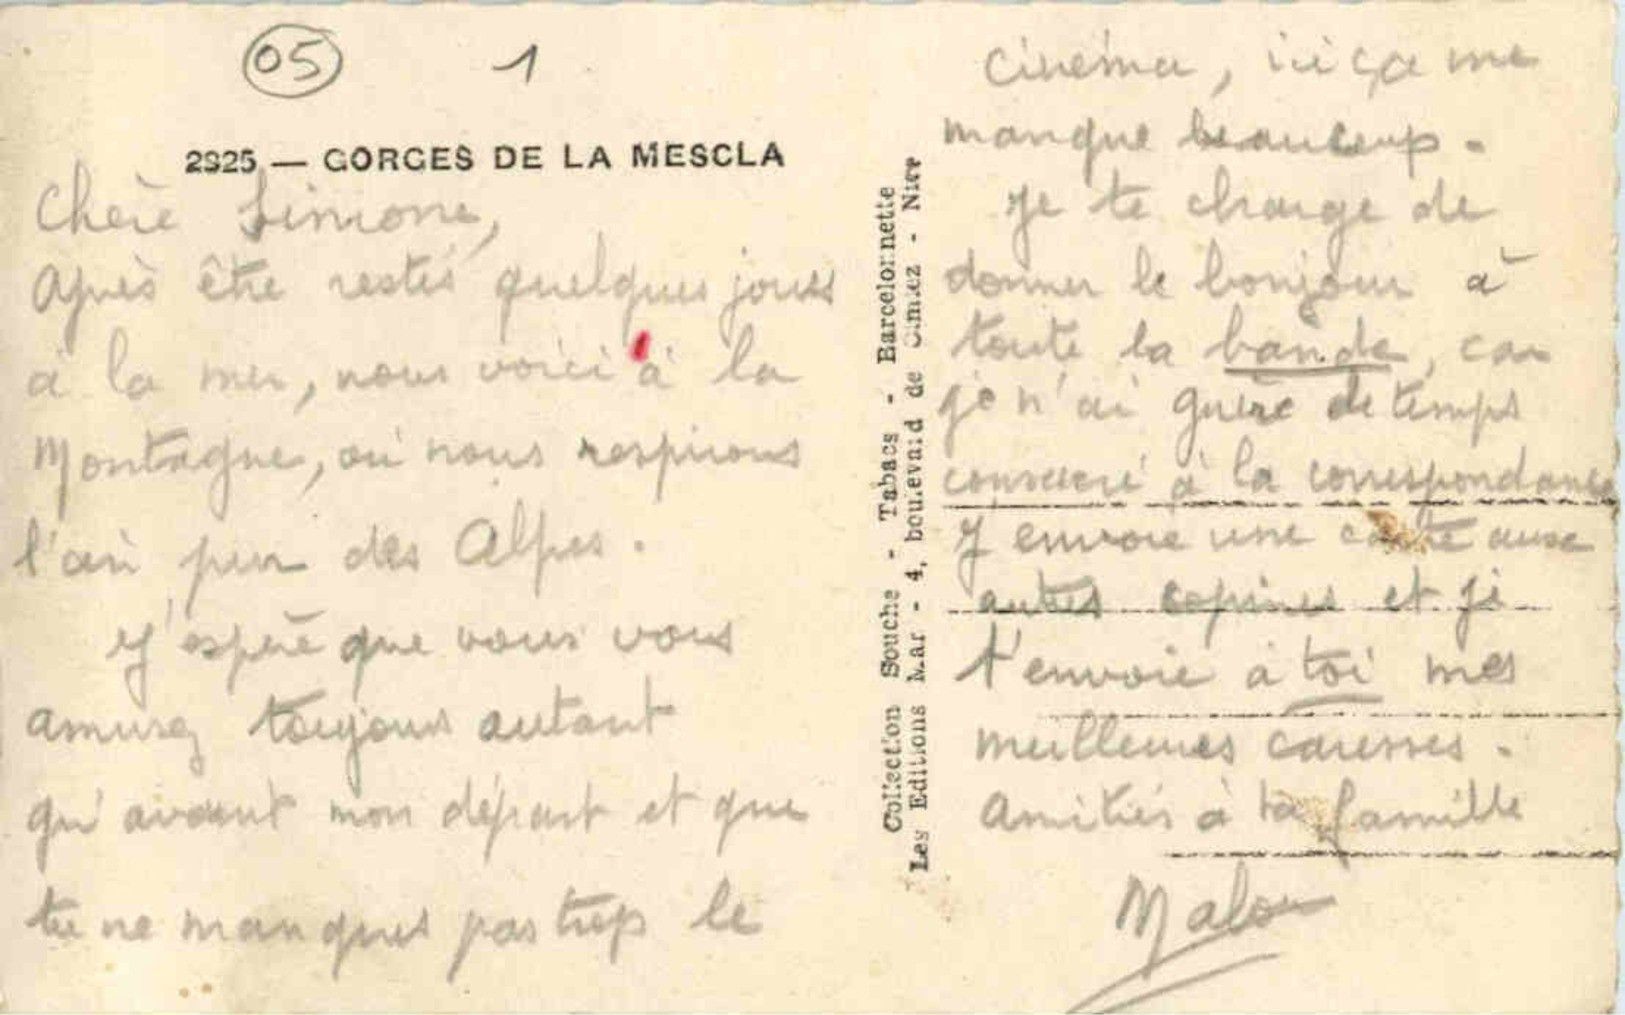 05 1
2925 — GORGES DE LA MESCLA
Chère Simone,
Après être restés quelques jours
à la mer, nous voici à la
Montagne, où nous respirons
l'air pur des Alpes.
J'espère que vous vous
amusez toujours autant
qu'avant mon départ et que
tu ne manques pas trop le
Collection Souche - Tabacs - Barcelonnette
Les Editions Mar - 4, boulevard de Cimiez - Nice
cinéma, ici ça me
manque beaucoup.
Je te charge de
donner le bonjour à
toute la bande, car
je n'ai guère de temps
consacré à la correspondance
J'envoie une carte aux
autres copines et je
t'envoie à toi mes
meilleures caresses.
Amitiés à ta famille
Malou